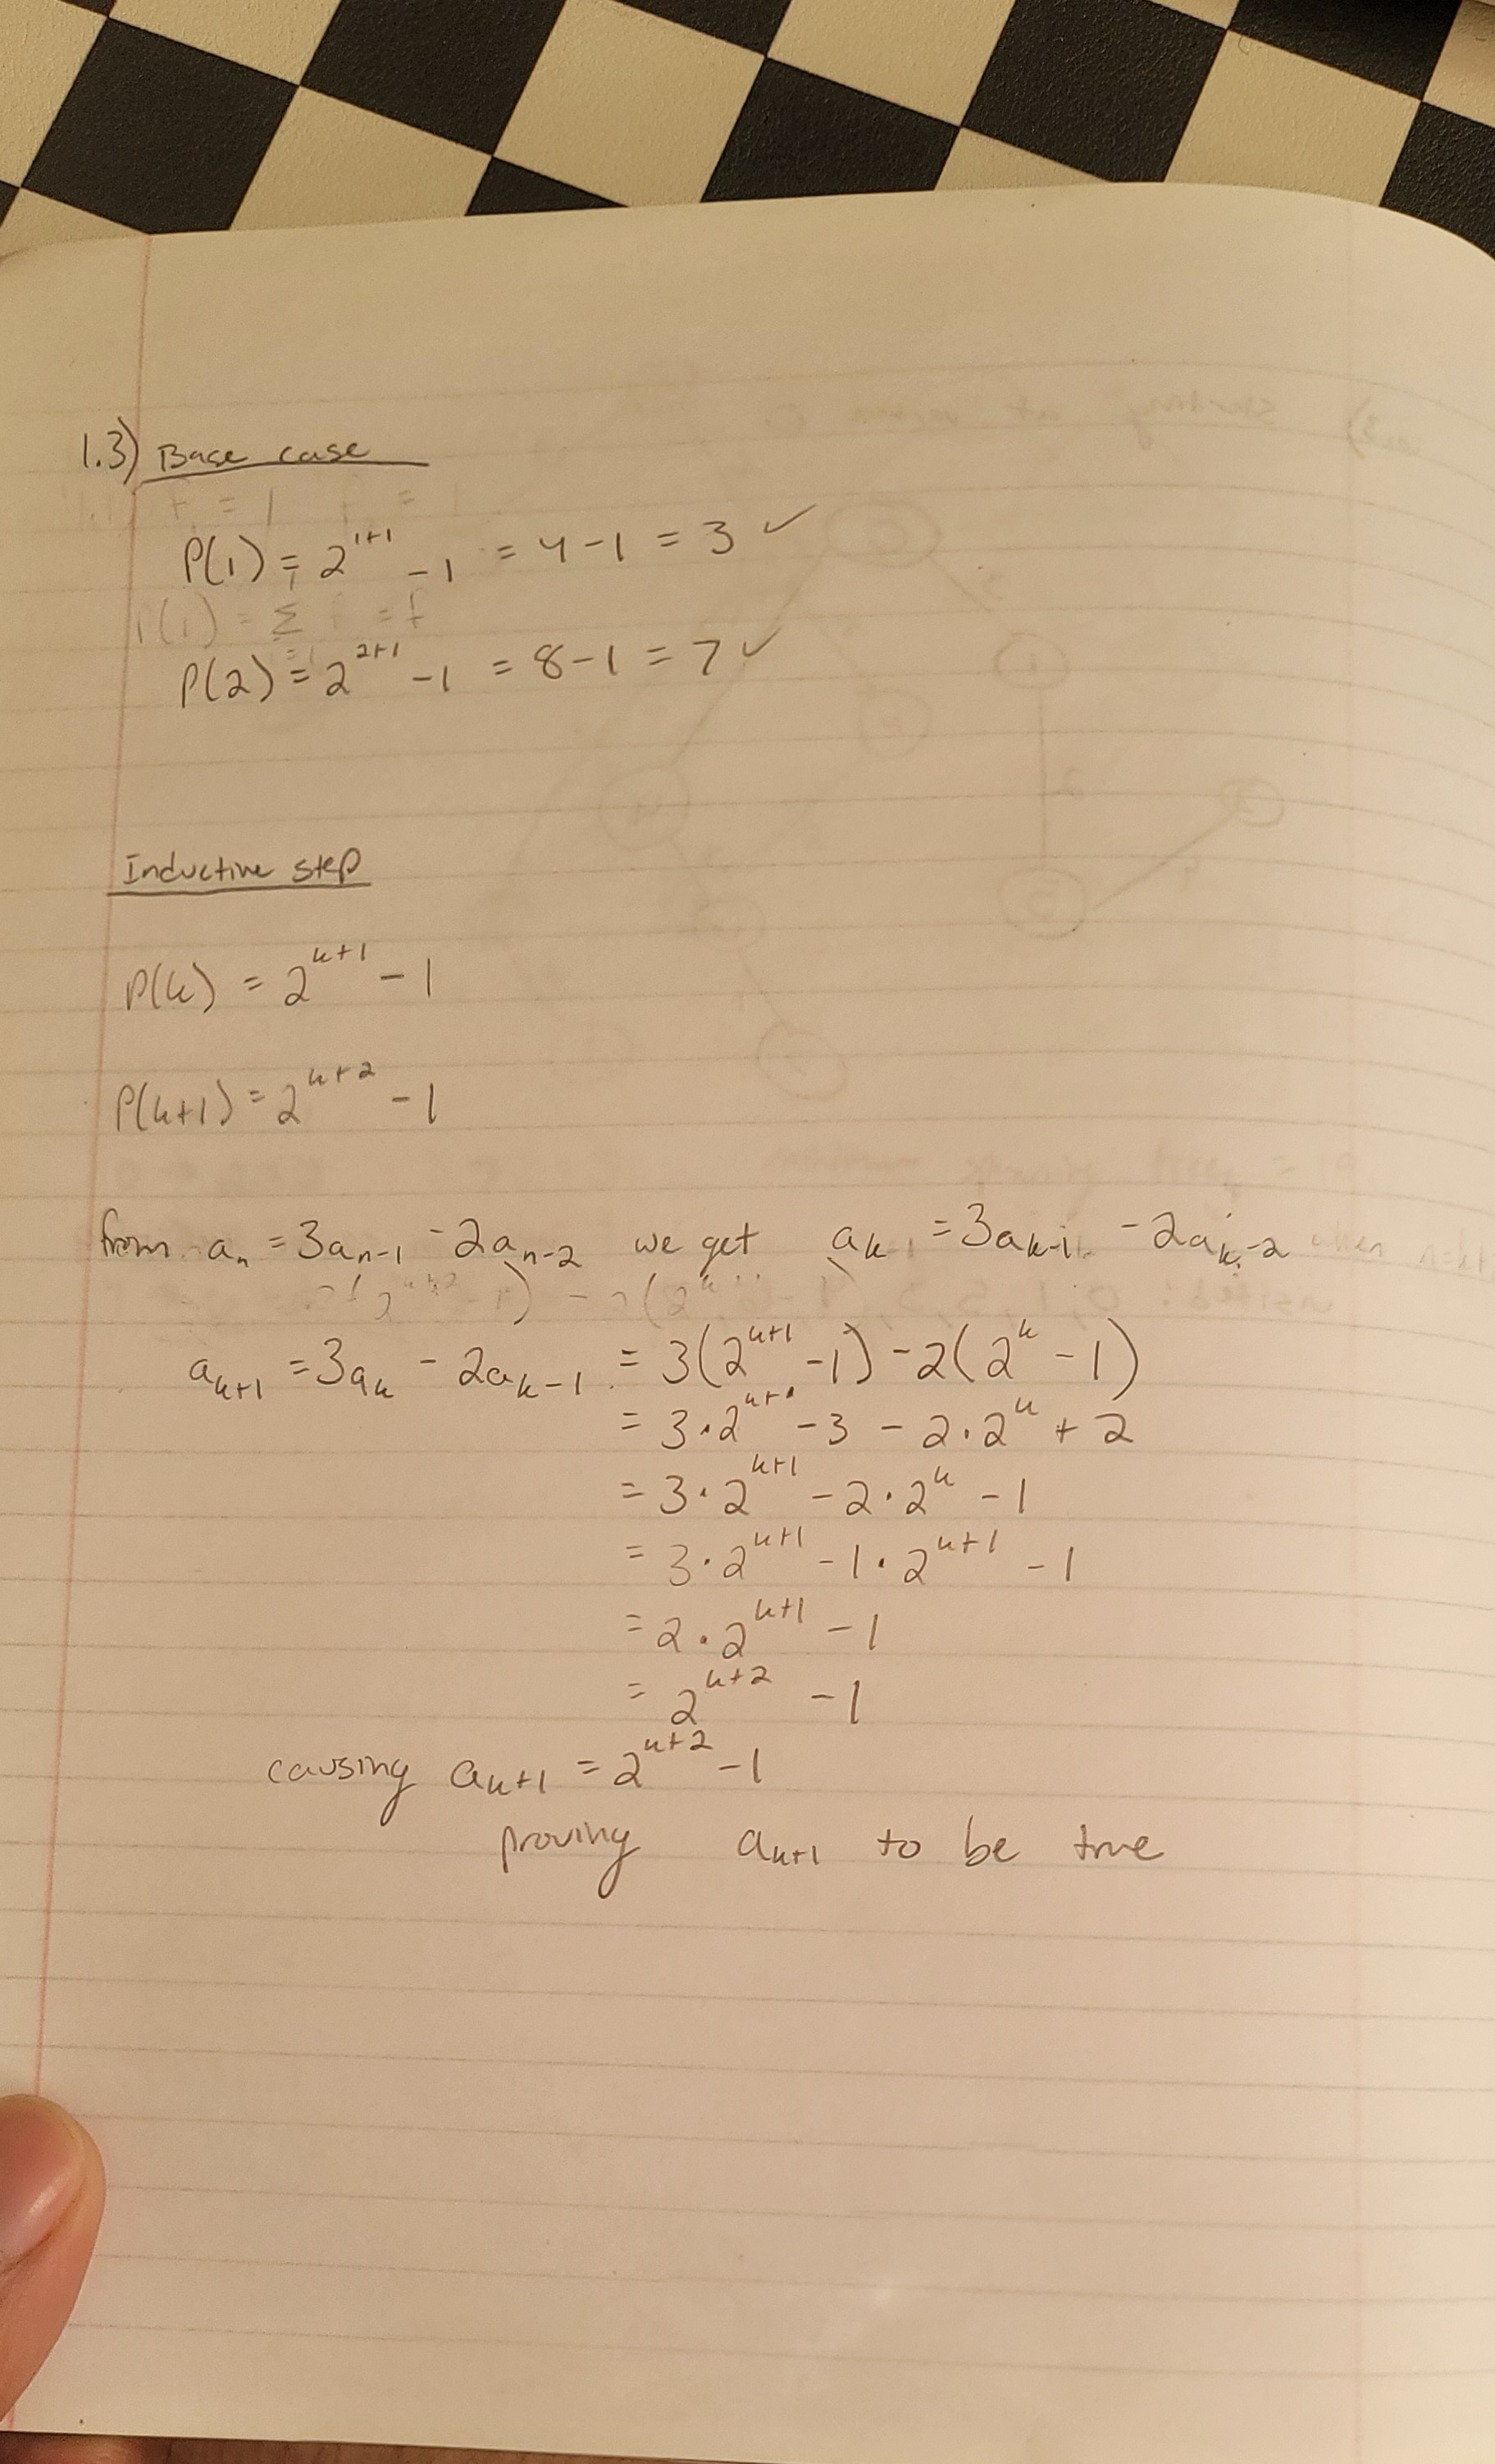 1.3) Base case
P(1) = 2^{1+1} - 1 = 4 - 1 = 3 ✓
P(2) = 2^{2+1} - 1 = 8 - 1 = 7 ✓
Inductive step
P(k) = 2^{k+1} - 1
P(k+1) = 2^{k+2} - 1
from a_n = 3a_{n-1} - 2a_{n-2} we get a_k = 3a_{k-1} - 2a_{k-2}
a_{k+1} = 3a_k - 2a_{k-1} = 3(2^{k+1} - 1) - 2(2^k - 1)
= 3·2^{k+1} - 3 - 2·2^k + 2
= 3·2^{k+1} - 2·2^k - 1
= 3·2^{k+1} - 1·2^{k+1} - 1
= 2·2^{k+1} - 1
= 2^{k+2} - 1
causing a_{k+1} = 2^{k+2} - 1
proving a_{k+1} to be true